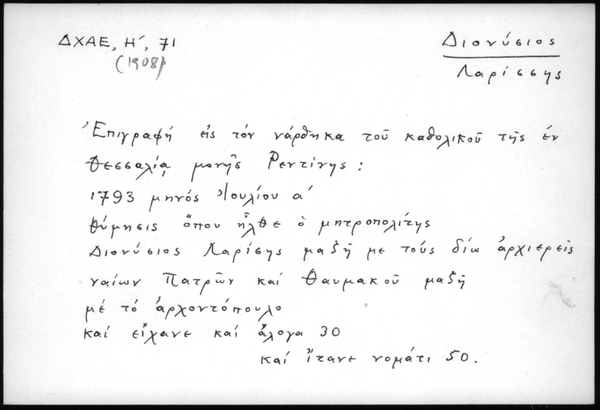 ΔΧΑΕ, Η´, 71
(1908)
Διονύσιος
Λαρίσσης
Ἐπιγραφή εἰς τόν νάρθηκα τοῦ καθολικοῦ τῆς ἐν
Θεσσαλίᾳ μονῆς Ρεντίνης :
1793 μηνός Ἰουλίου α´
θύμησις ὅπου ἦλθε ὁ μητροπολίτης
Διονύσιος Λαρίσης μαζῆ με τούς δίω ἀρχιερεῖς
ναίων Πατρῶν καί Θαυμακοῦ μαζῆ
μέ τό ἀρχοντόπουλο
καί εἴχανε καί ἄλογα 30
καί ἴτανε νομάτι 50.